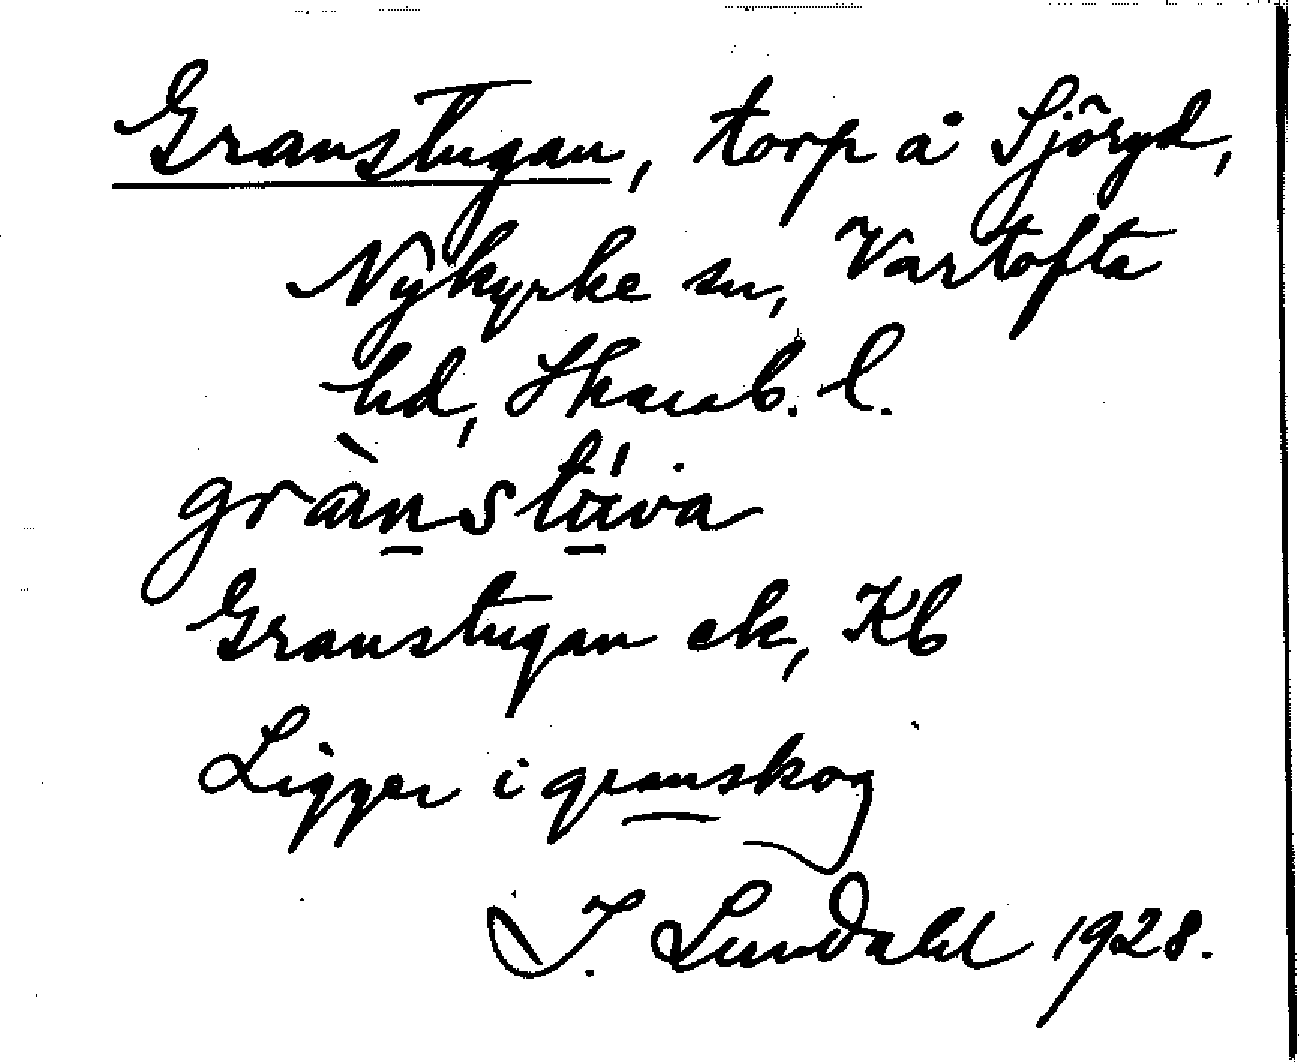 Granstugan, torp å Sjöryd,
Nykyrke sn, Vartofta
hd, Skarab. l.
Granstugan ek, Kb
Ligger i granskog
I. Lundahl 1928.